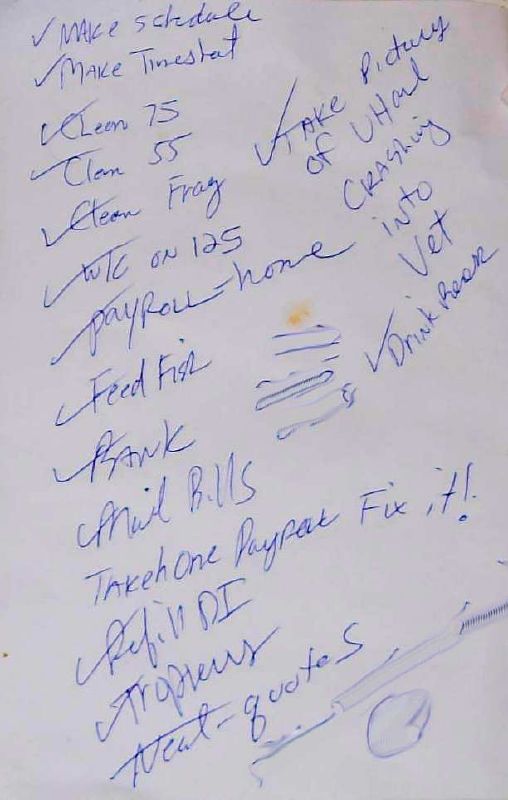 Make schedule
Make Timesheet
Clean 75
Clean 55
Clean Frag
WC on 125
Payroll - home
Feed Fish
Bank
Mail Bills
Take home Fix it!
Refill DI
quotes
Take Picture
of UHaul
Crashing
into
Vet
Drink Beer